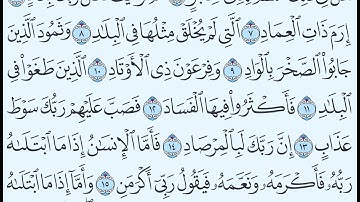 إِرَمَ ذَاتِ ٱلْعِمَادِ ٧ ٱلَّتِى لَمْ يُخْلَقْ مِثْلُهَا فِى ٱلْبِلَٰدِ ٨ وَثَمُودَ ٱلَّذِينَ
جَابُوا۟ ٱلصَّخْرَ بِٱلْوَادِ ٩ وَفِرْعَوْنَ ذِى ٱلْأَوْتَادِ ١٠ ٱلَّذِينَ طَغَوْا۟ فِى
ٱلْبِلَٰدِ ١١ فَأَكْثَرُوا۟ فِيهَا ٱلْفَسَادَ ١٢ فَصَبَّ عَلَيْهِمْ رَبُّكَ سَوْطَ
عَذَابٍ ١٣ إِنَّ رَبَّكَ لَبِٱلْمِرْصَادِ ١٤ فَأَمَّا ٱلْإِنسَٰنُ إِذَا مَا ٱبْتَلَىٰهُ
رَبُّهُۥ فَأَكْرَمَهُۥ وَنَعَّمَهُۥ فَيَقُولُ رَبِّىٓ أَكْرَمَنِ ١٥ وَأَمَّآ إِذَا مَا ٱبْتَلَىٰهُ